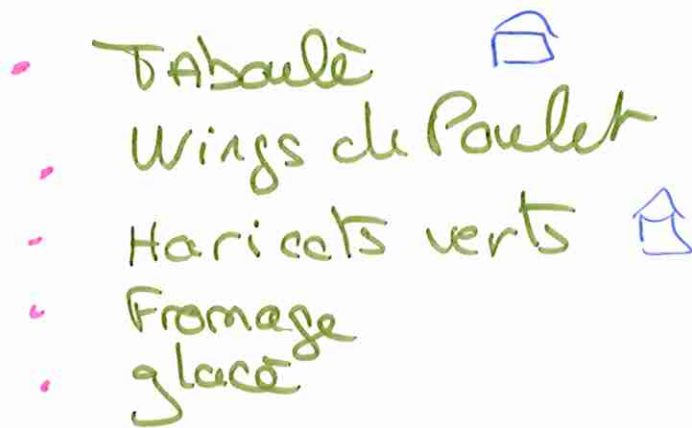 Taboulè
Wings de Poulet
Haricots verts
Fromage
glacē